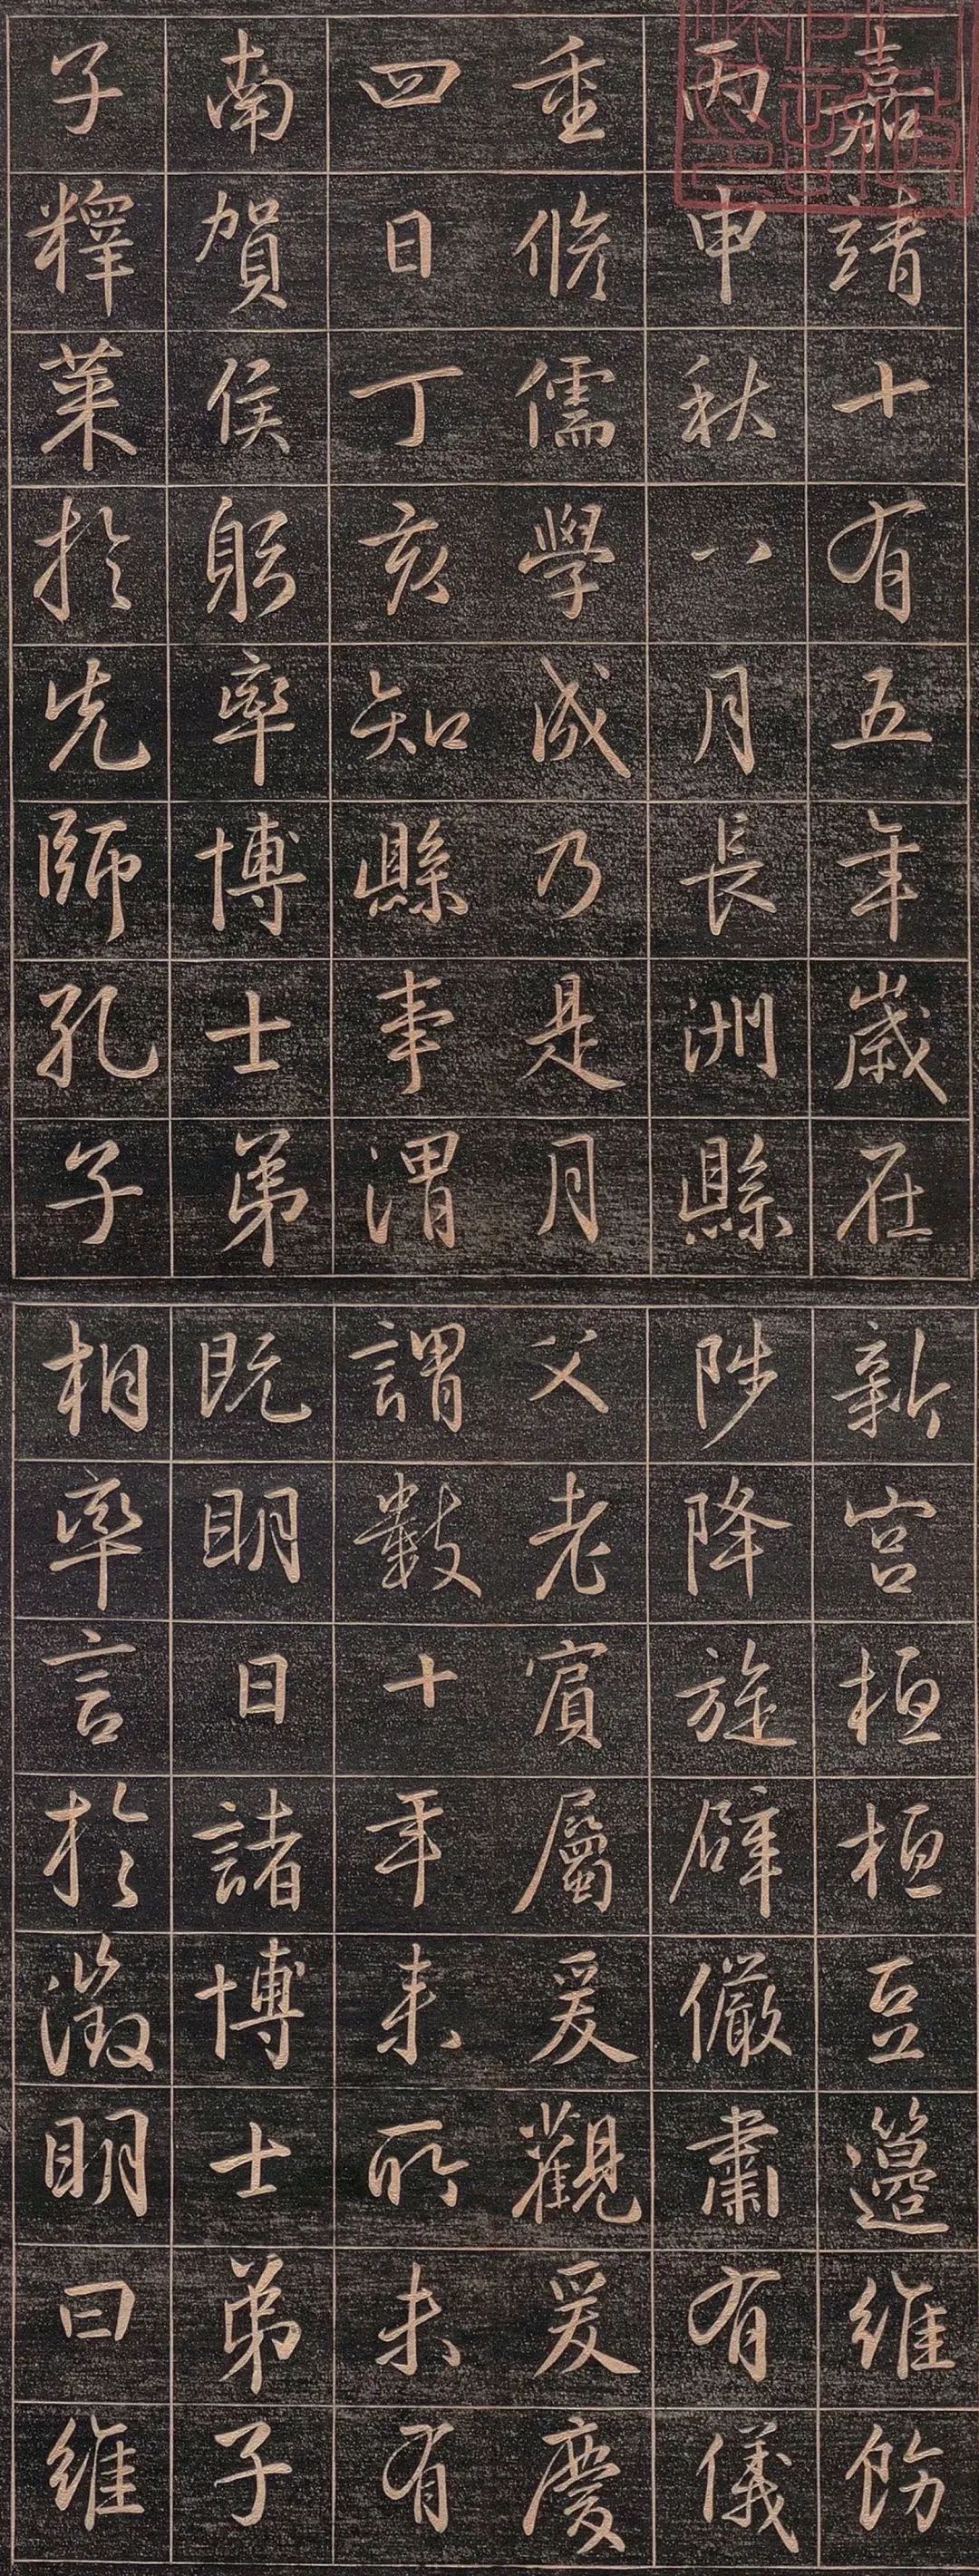 嘉靖十有五年歲在
丙申秋八月長洲縣
重脩儒學成乃是月
四日丁亥知縣事渭
南賀侯躬率博士弟
子釋菜於先師孔子
新宮桓桓豆籩維飭
陟降旋辟儼肅有儀
父老賓屬爰觀爰慶
謂數十年来所未有
既明日諸博士弟子
相率言於徵明曰維